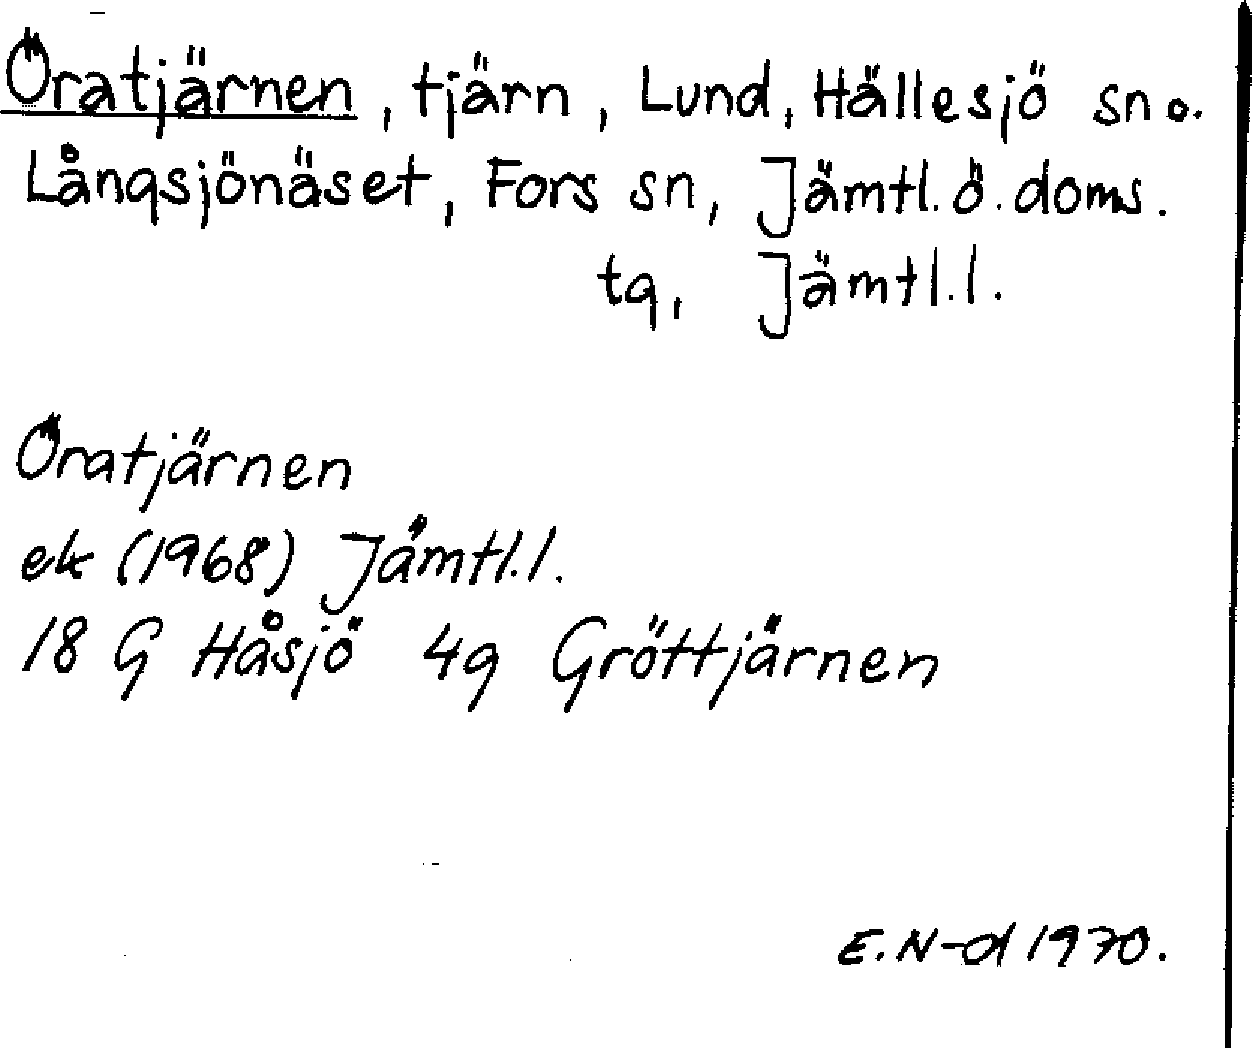 Öratjärnen, tjärn, Lund, Hällesjö sn o.
Långsjönäset, Fors sn, Jämtl. ö. doms.
tg, Jämtl. l.
Öratjärnen
ek (1968) Jämtl. l.
18 G Håsjö 4g Gröttjärnen
E. N-d 1970.